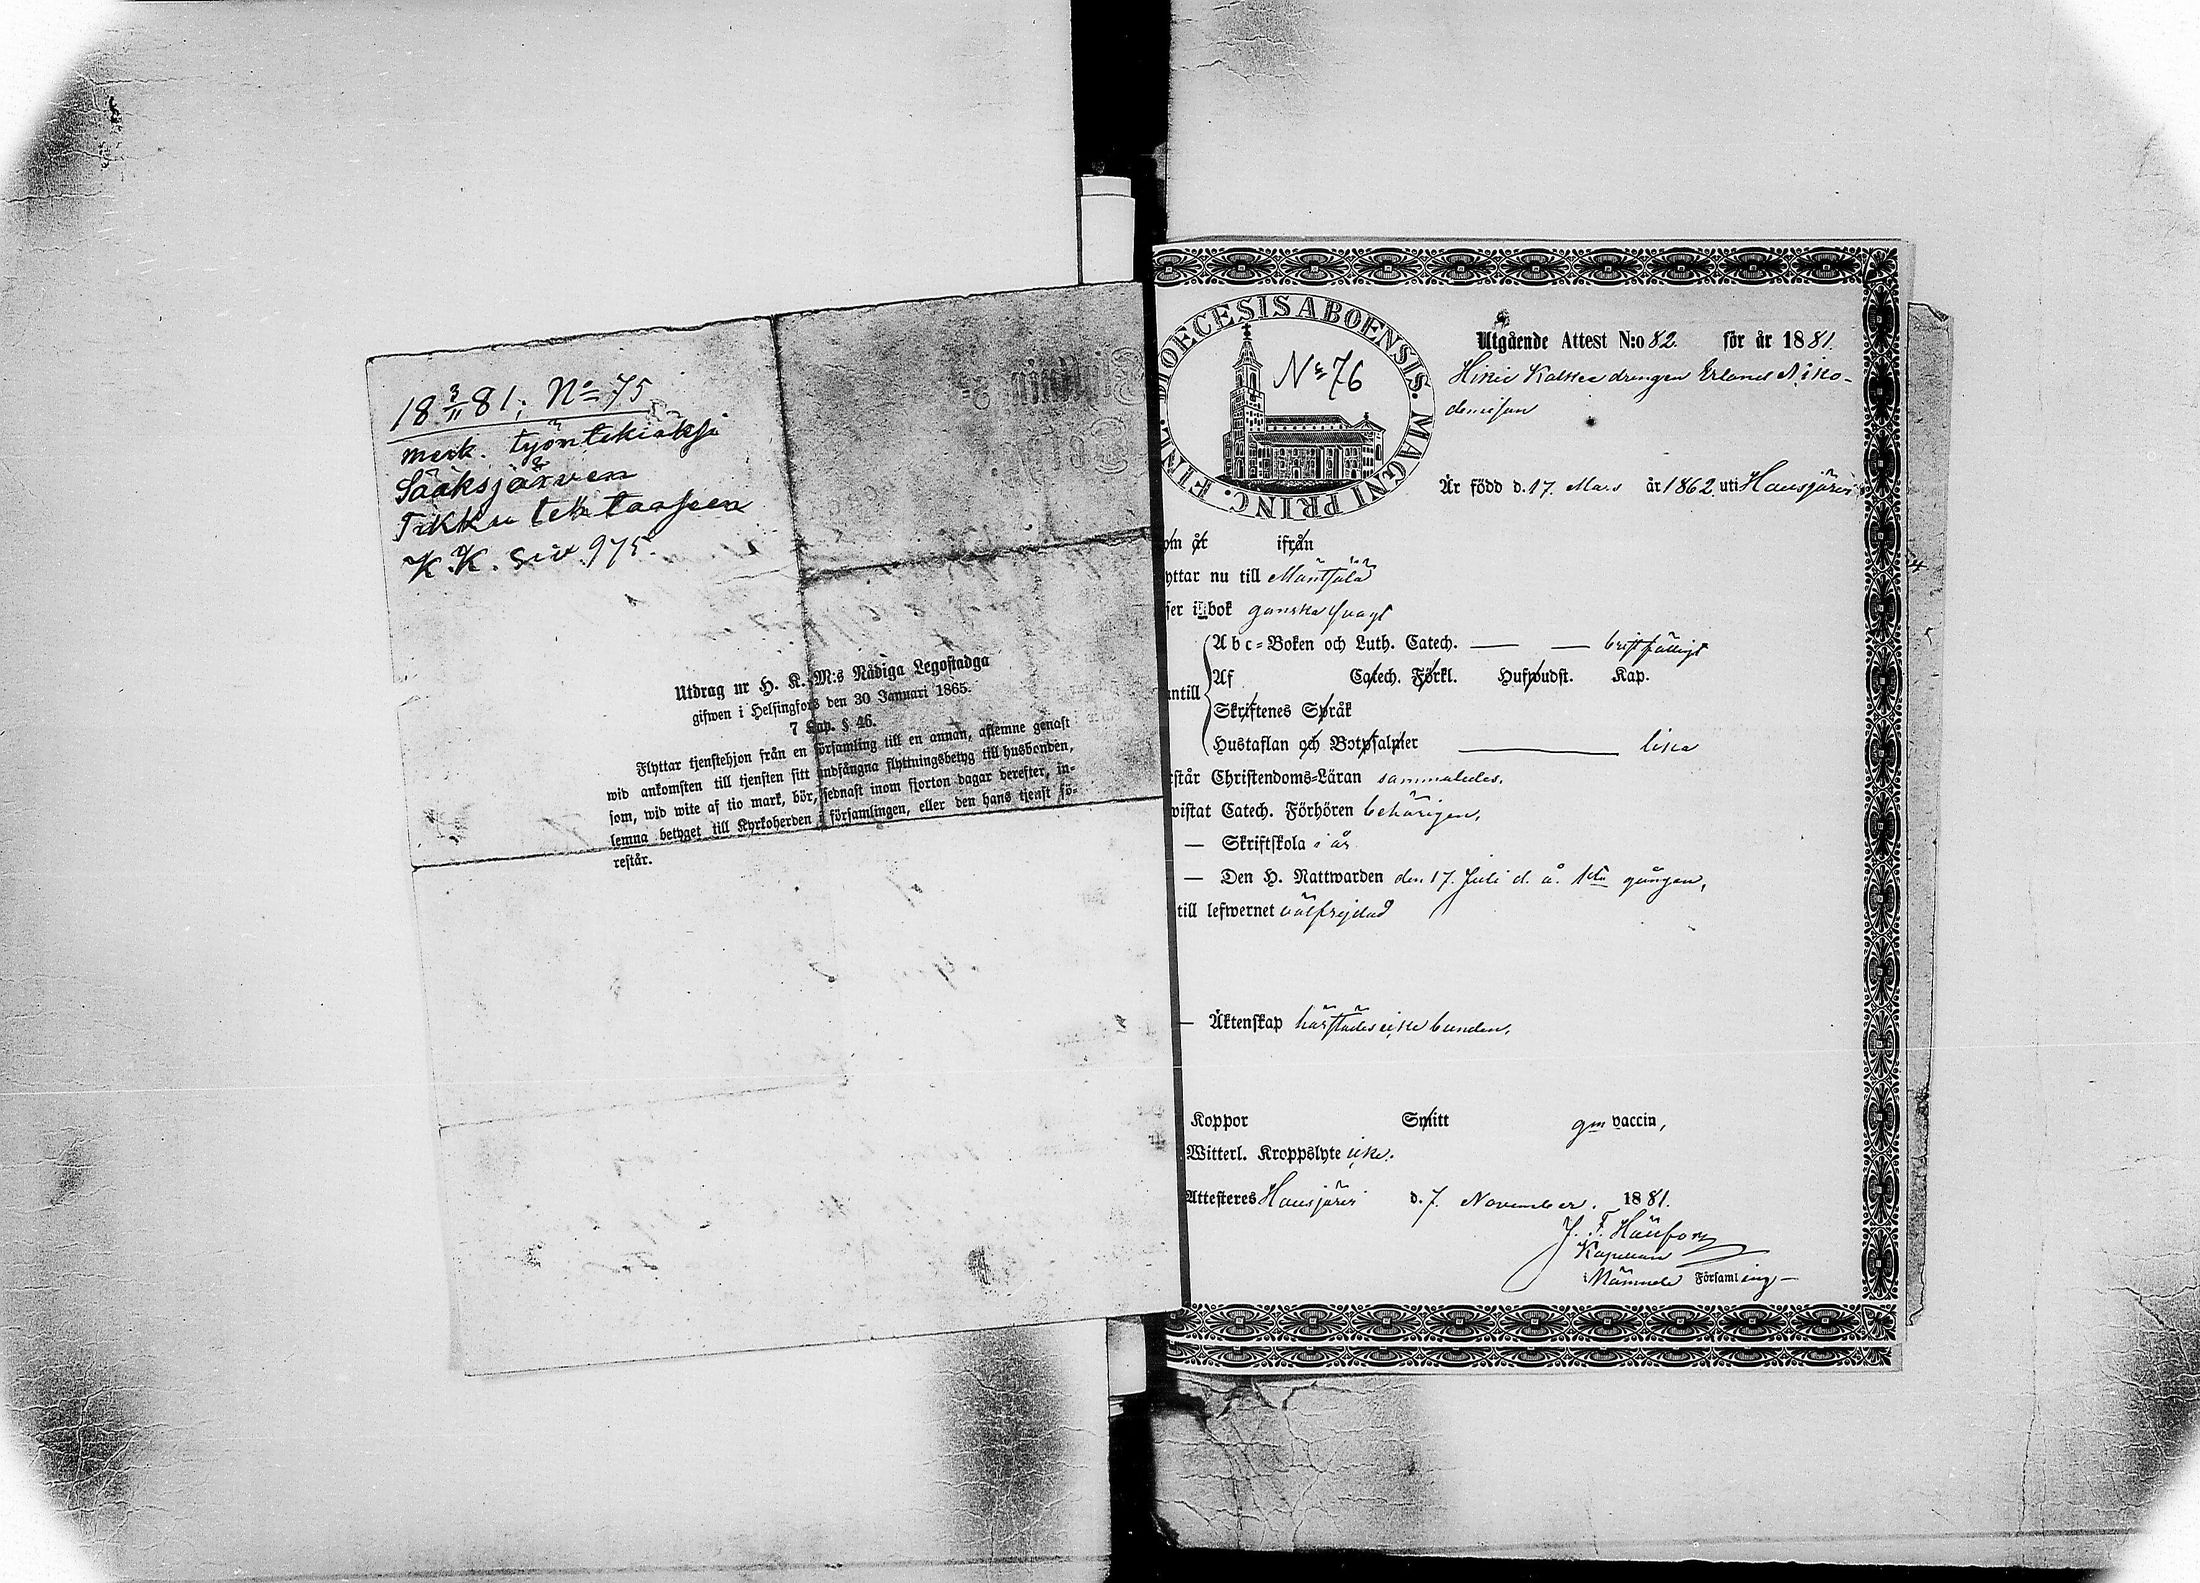 18 3/11 81; No 75
merk. työntekiäksi
Sääksjärven
Tikku tehtaaseen
K.K. siv. 975.
Utdrag ur H. K. M:s Nådiga Legostadga
gifwen i Helsingfors den 30 Januari 1865.
7 Kap. § 46.
Flyttar tjenstehjon från en församling till en annan, aflemne genast
wid ankomsten till tjensten sitt undfångna flyttningsbetyg till husbonden,
som, wid wite af tio mark, bör, sednast inom fjorton dagar derefter, in-
lemna betyget till Kyrkoherden i församlingen, eller den hans tjenst fö-
restår.
DIOECESIS ABOENSIS. MAGNI PRINC. FINL.
No 76
Utgående Attest N:o 82. för år 1881.
Hikiä Kalkka drengen Erland Niko-
demusson
Är född d. 17. Mars år 1862 uti Hausjärvi
om åt ifrån
yttar nu till Mäntsälä
ser i bok ganska svagt
Abc-Boken och Luth. Catech. — — bristfälligt
Af Catech. Förkl. Hufwudst. Kap.
ntill
Skriftenes Språk
Hustaflan och Botpsalmer — lika
står Christendoms-Läran sammaledes.
wistat Catech. Förhören behörigen.
— Skriftskola i år
— Den H. Nattwarden den 17. Juli d. å. 1sta gången.
till lefwernet välfrejdad
— Äktenskap härstädes icke bunden.
Koppor Smitt gm vaccin,
Witterl. Kroppslyte icke.
Attesteres Hausjärvi d. 7. November. 1881.
J. F.
Kapellan
i Nämnde Församling